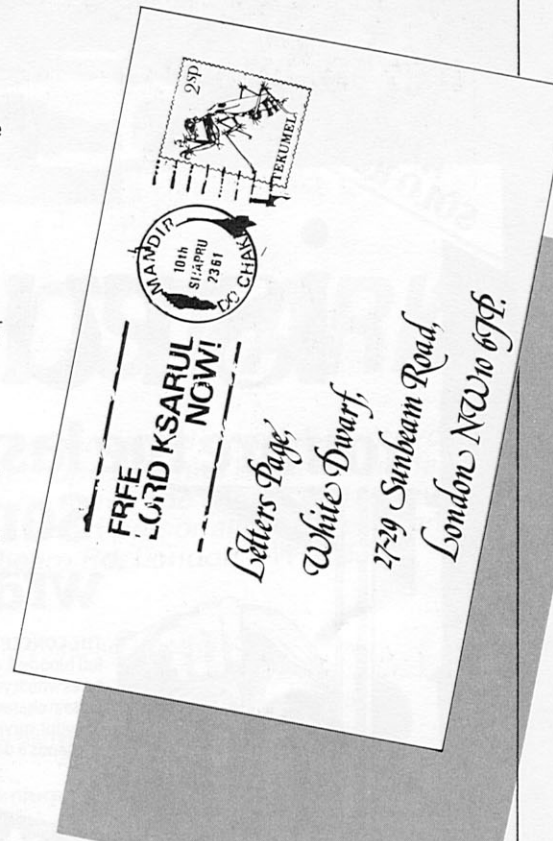 2sp
TEKUMEL
MANDIR
10th
SHAPRU
2361
DO CHAKA
FREE
LORD KSARUL
NOW!
Letters Page,
White Dwarf,
27-29 Sunbeam Road,
London NW10 6JP.